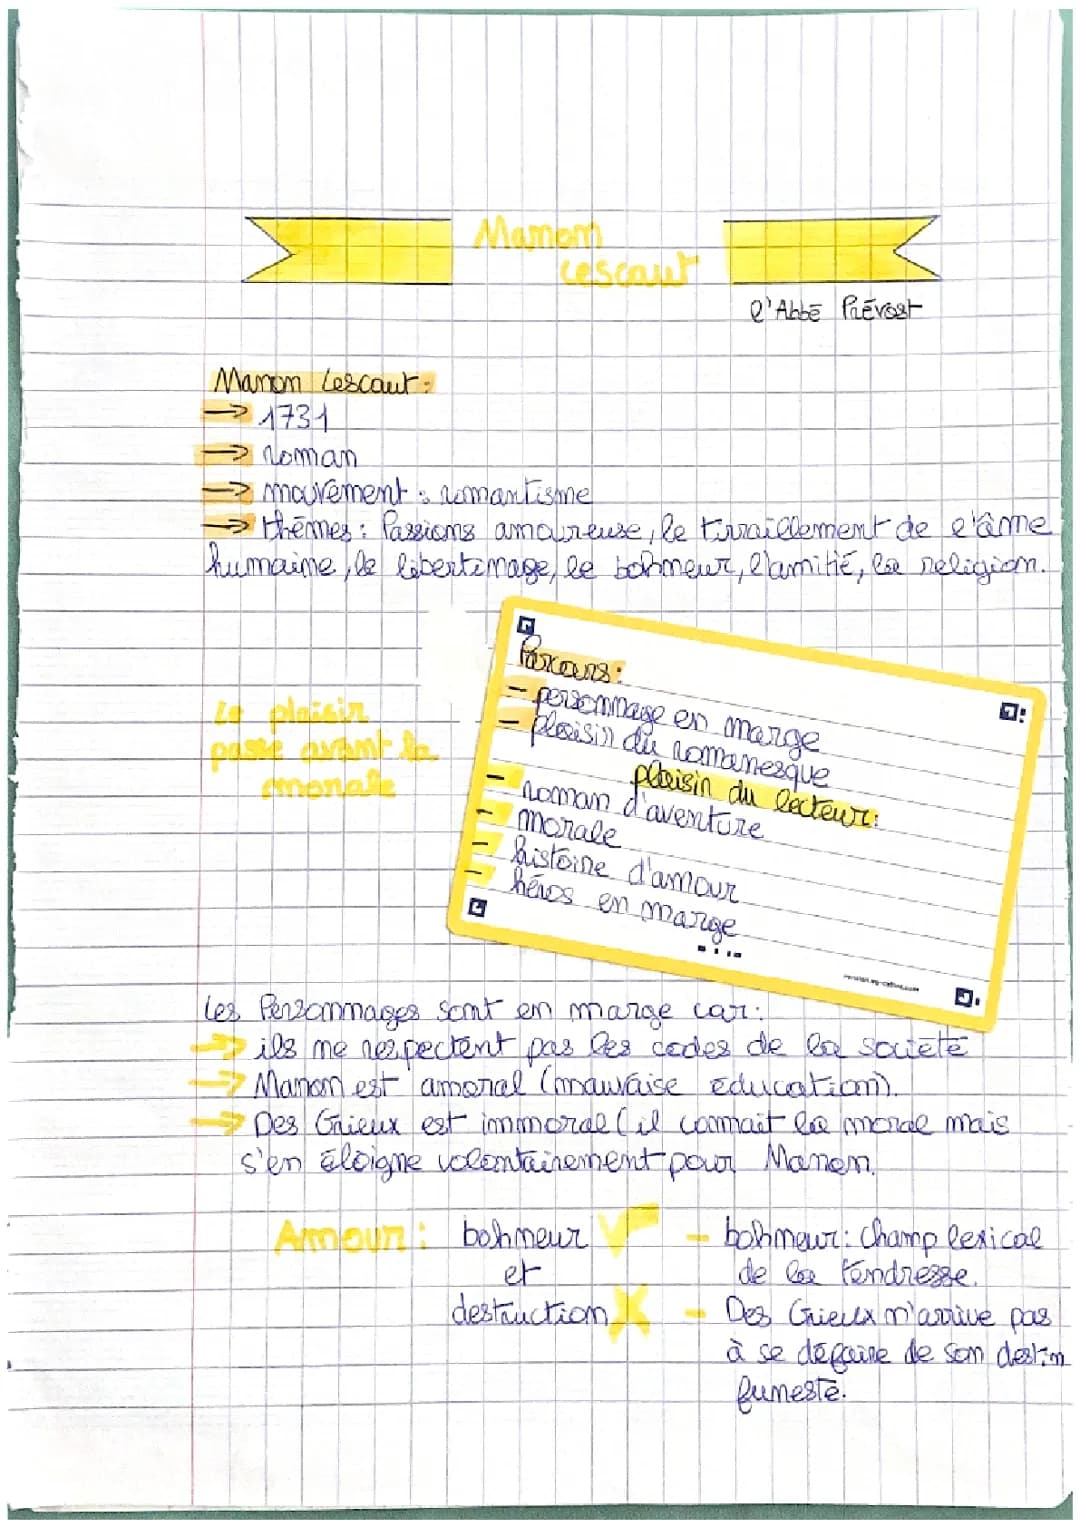 Manon
Lescaut
l'Abbé Prévost
Manon Lescaut :
→ 1731
→ roman
→ mouvement : romantisme
→ thèmes : Passions amoureuse, le tirraillement de l'âme
humaine, le libertinage, le bohneur, l'amitié, la religion.
Parcours :
- personnage en marge
- plaisir du romanesque
plaisir du lecteur :
- roman d'aventure
- morale
- histoire d'amour
- héros en marge
...
Le plaisir
passe avant la
morale
Les Personnages sont en marge car :
→ ils ne respectent pas les codes de la société
→ Manon est amoral (mauvaise éducation).
→ Des Grieux est immoral (il connait la morale mais
s'en éloigne volontairement pour Manon.
Amour : bohneur ✓
et
destruction X
- bohneur : champ lexical
de la tendresse.
- Des Grieux n'arrive pas
à se défaire de son destin
funeste.